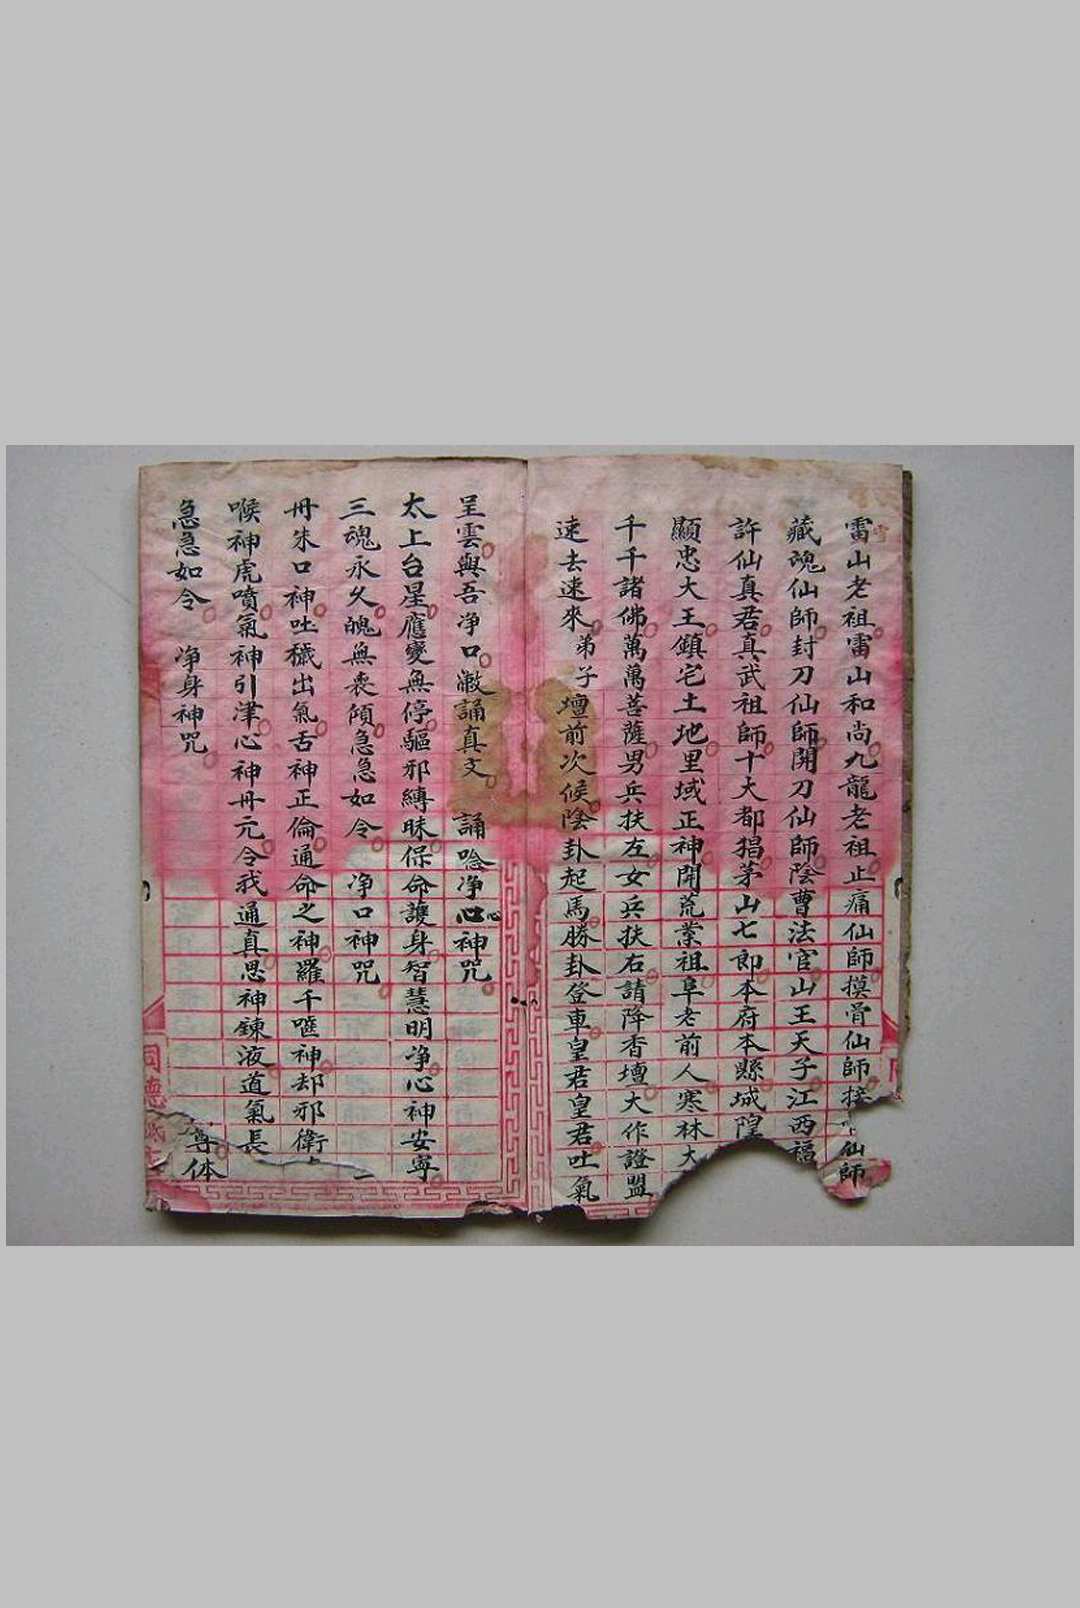 雷山老祖雷山和尚九龍老祖止痛仙師摸骨仙師接仙師
藏魂仙師封刀仙師開刀仙師陰曹法官山王天子江西福
許仙真君真武祖師十大都猖茅山七郎本府本縣城隍
顯忠大王鎮宅土地里域正神開荒業祖阜老前人寒林大
千千諸佛萬萬菩薩男兵扶左女兵扶右請降香壇大作證盟
速去速來弟子壇前次候陰卦起馬勝卦登車皇君皇君吐氣
呈雲與吾净口敝誦真文 誦唸净心神咒
太上台星應變無停驅邪縛昧保命護身智慧明净心神安寧
三魂永久魄無丧傾急急如令 净口神咒
丹朱口神吐穢出氣舌神正倫通命之神羅千㗏神却邪衛
喉神虎噴氣神引津心神丹元令我通真思神鍊液道氣長
急急如令 净身神咒
尊体
同德